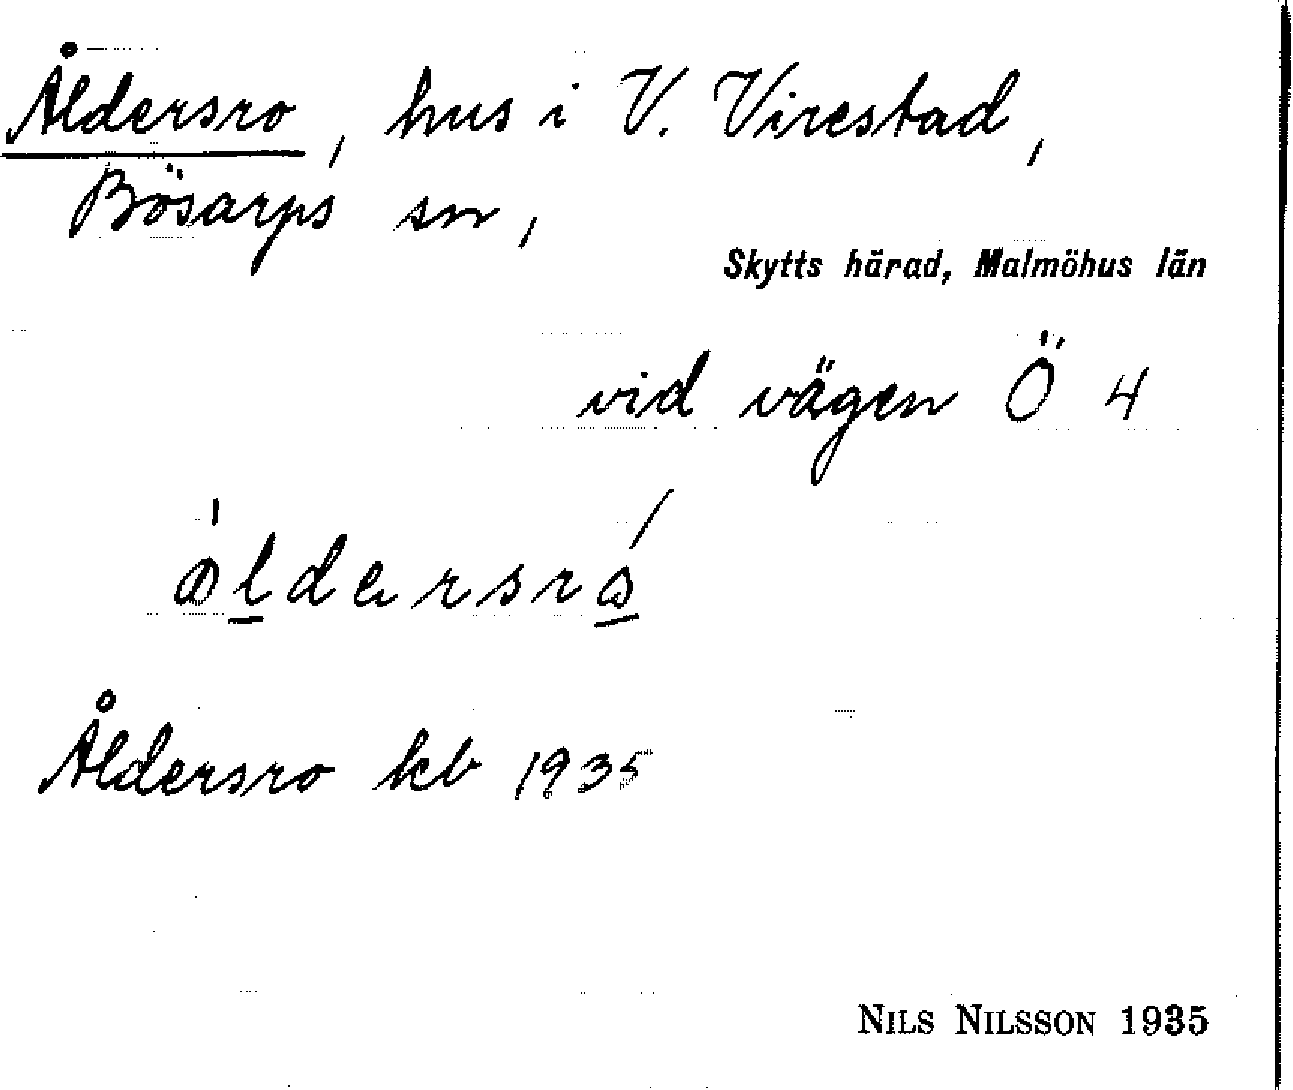 Åldersro, hus i V. Virestad,
Bösarps sn,
Skytts härad, Malmöhus län
vid vägen Ö 4
Åldersro kb 1935
NILS NILSSON 1935